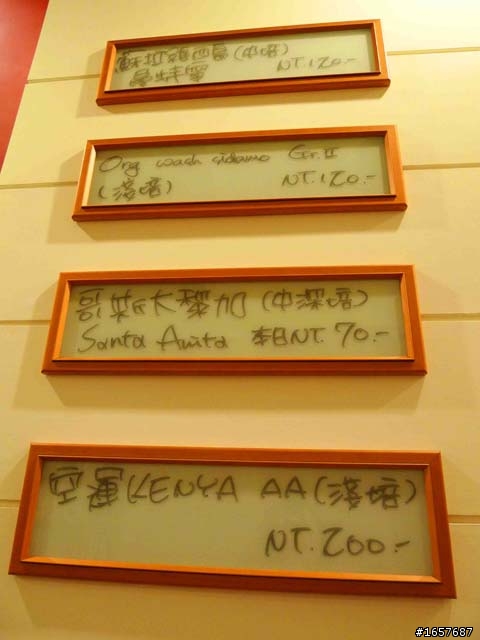 蘇拉維西島(中焙)
曼特寧 NT.120.-
Org wash sidamo Gr.II
(淺焙) NT.120.-
哥斯大黎加(中深焙)
Santa Anita 本日NT.70.-
空運KENYA AA(淺焙)
NT.200.-
#1657687